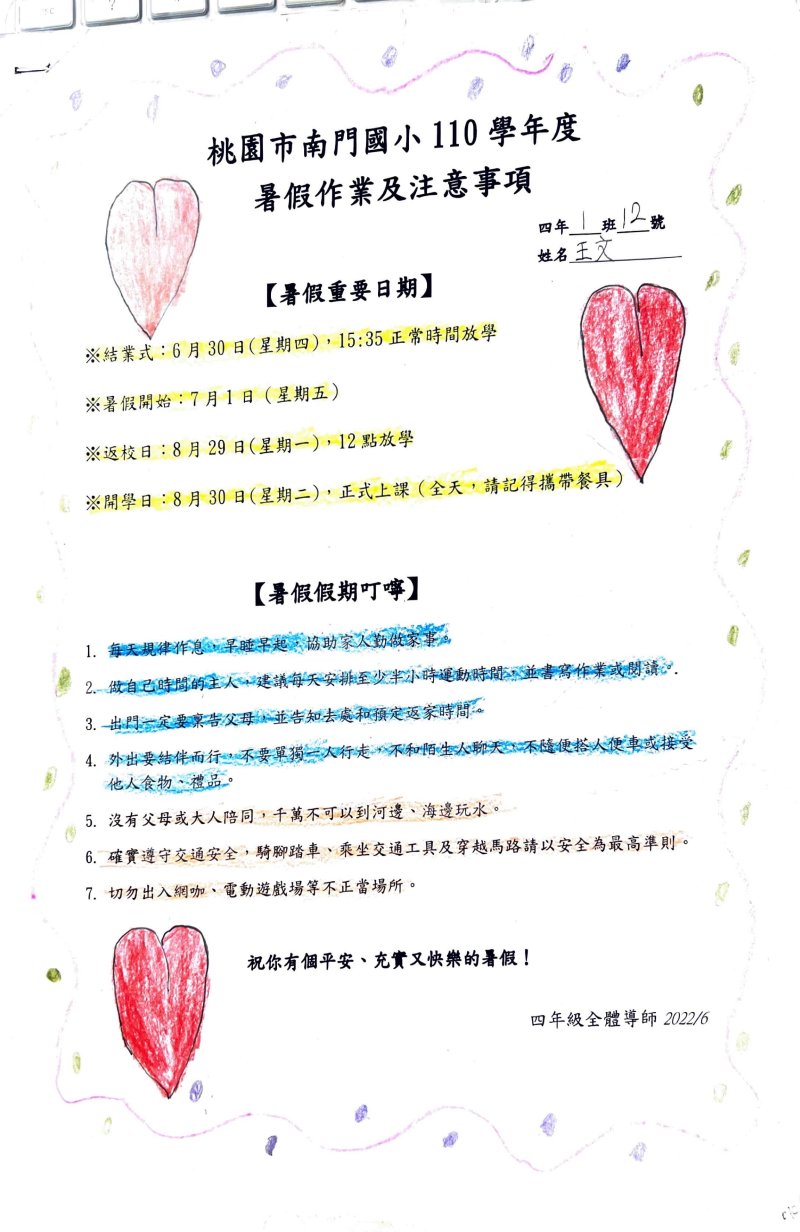 桃園市南門國小 110 學年度
暑假作業及注意事項
四年 1 班 12 號
姓名 王文
【暑假重要日期】
※結業式：6 月 30 日(星期四)，15:35 正常時間放學
※暑假開始：7 月 1 日（星期五）
※返校日：8 月 29 日(星期一)，12 點放學
※開學日：8 月 30 日(星期二)，正式上課（全天，請記得攜帶餐具）
【暑假假期叮嚀】
1. 每天規律作息，早睡早起，協助家人勤做家事。
2. 做自己時間的主人，建議每天安排至少半小時運動時間，並書寫作業或閱讀。.
3. 出門一定要稟告父母，並告知去處和預定返家時間。
4. 外出要結伴而行，不要單獨一人行走，不和陌生人聊天，不隨便搭人便車或接受
他人食物、禮品。
5. 沒有父母或大人陪同，千萬不可以到河邊、海邊玩水。
6. 確實遵守交通安全，騎腳踏車、乘坐交通工具及穿越馬路請以安全為最高準則。
7. 切勿出入網咖、電動遊戲場等不正當場所。
祝你有個平安、充實又快樂的暑假！
四年級全體導師 2022/6